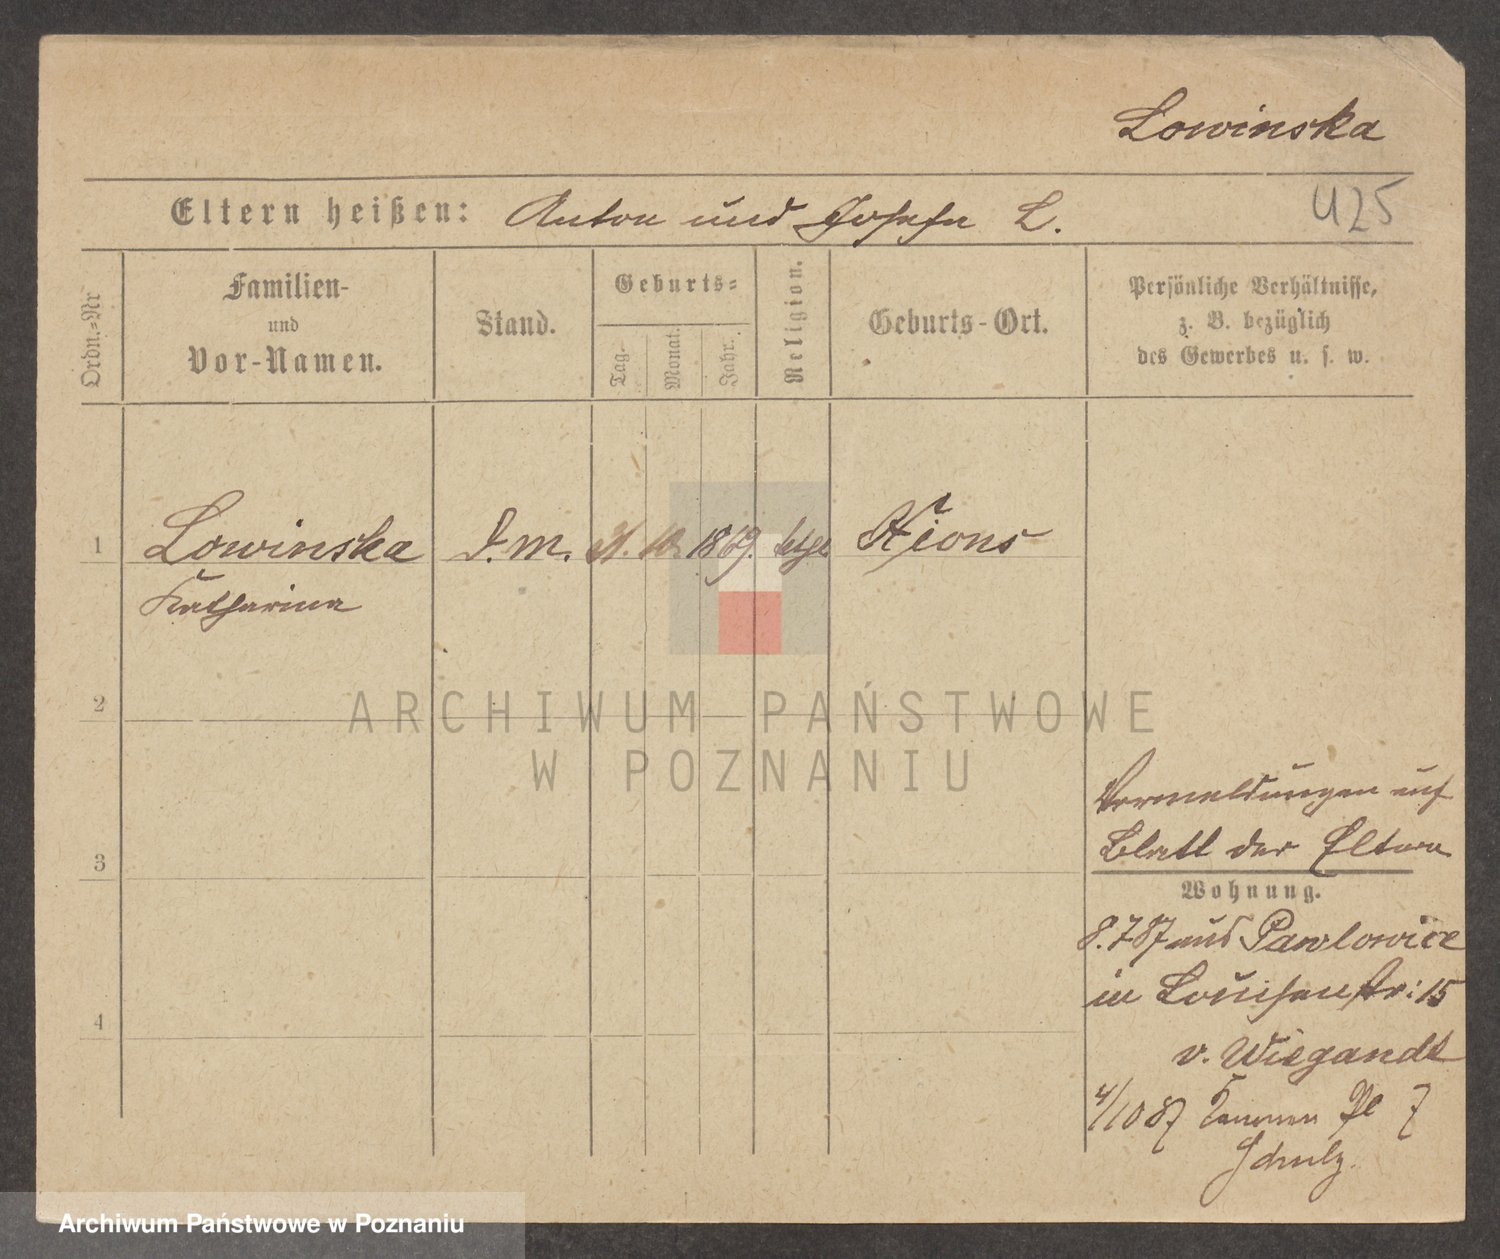 Lowinska
Eltern heißen: Anton und Josefa L.
425
Ordn.-Nr
Familien-
und
Vor-Namen.
Stand.
Geburts-
Tag.
Monat.
Jahr.
Religion.
Geburts-Ort.
Persönliche Verhältnisse,
z. B. bezüglich
des Gewerbes u. s. w.
1
Lowinska
Katharina
D. M.
21. 10. 1869.
Xions
2
ARCHIWUM PAŃSTWOWE
W POZNANIU
3
Vormeldungen auf
Blatt der Eltern
Wohnung.
8.7 87 aus Pawlowice
in Louisenstr: 15
v. Wiegandt
4
4/10 87 Kanonen Pl 7
Schulz.
Archiwum Państwowe w Poznaniu